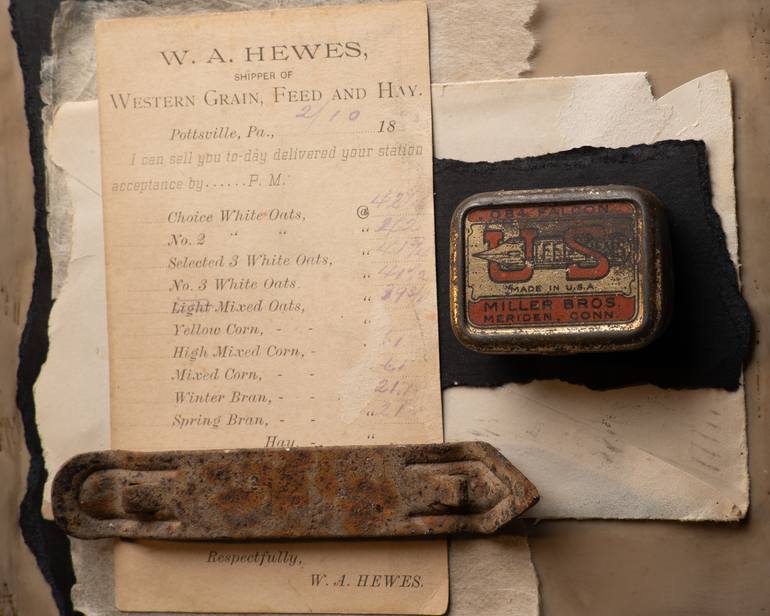 W. A. HEWES,
SHIPPER OF
WESTERN GRAIN, FEED AND HAY.
2/10
Pottsville, Pa., 18
I can sell you to-day delivered your station
acceptance by......P. M.
Choice White Oats, @
No. 2 " " "
Selected 3 White Oats, "
No. 3 White Oats "
Light Mixed Oats, "
Yellow Corn, - -
High Mixed Corn, -
Mixed Corn, - -
Winter Bran, - -
Spring Bran, - - "
Hay, - - "
Respectfully,
W. A. HEWES.
084 FALCON
US
MADE IN U.S.A.
MILLER BROS.
MERIDEN, CONN.